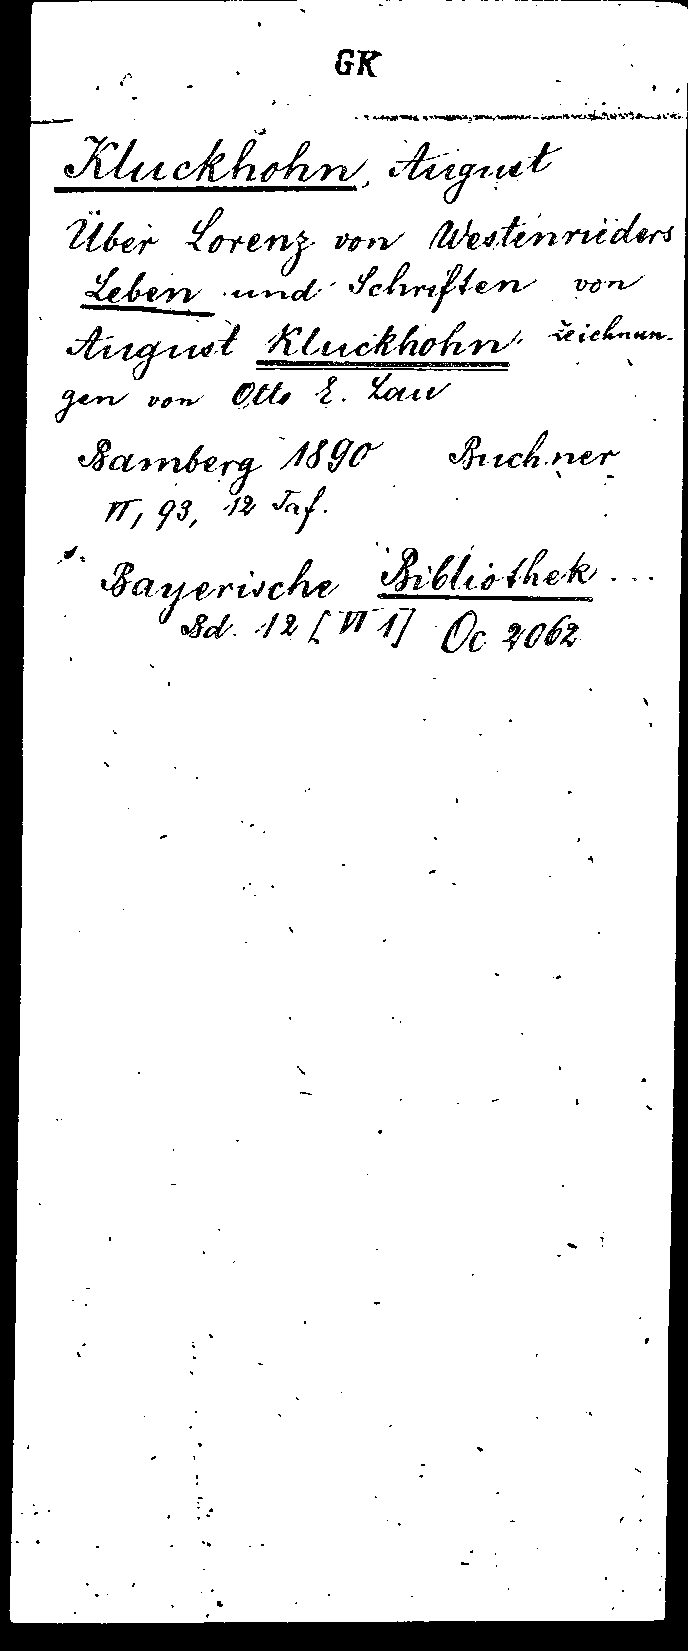 GK
Kluckhohn, August
Über Lorenz von Westenrieders
Leben und Schriften von
August Kluckhohn. Zeichnun-
gen von Otto E. Lau
Bamberg 1890 Buchner
VI, 93, 12 Taf.
Bayerische Bibliothek ...
Bd. 12 [VI 1] Oc 2062